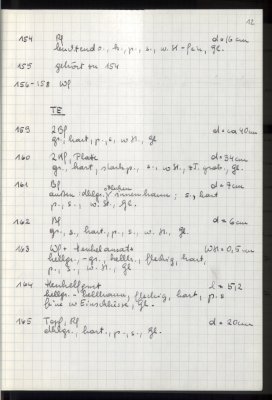 12
154 Bf d = 16 cm
155 gehört zu 154
156-158 Wf
TE
159 2 Bf d = ca 40 cm
gr., hart, p., s., w. St., Gl.
160 d = 34 cm
gr., hart, s., w. St., Gl.
161 Bf d = 9 cm
außen innen braun; s., hart
p., s., w. St., Gl.
162 Bf d = 6 cm
gr., s., hart, p., s., w. St., Gl.
163 Wf + Henkelansatz WSt = 0,5 cm
hellgr., -gr., hellb., fleckig, hart,
p., s., w. St., Gl
164 l = 5,2
hellgr. - hellbraun, fleckig, hart, p. s
feine w Einschlüsse, Gl.
165 Topf, Rf d = 20 cm
dklgr., hart, p., s., Gl.